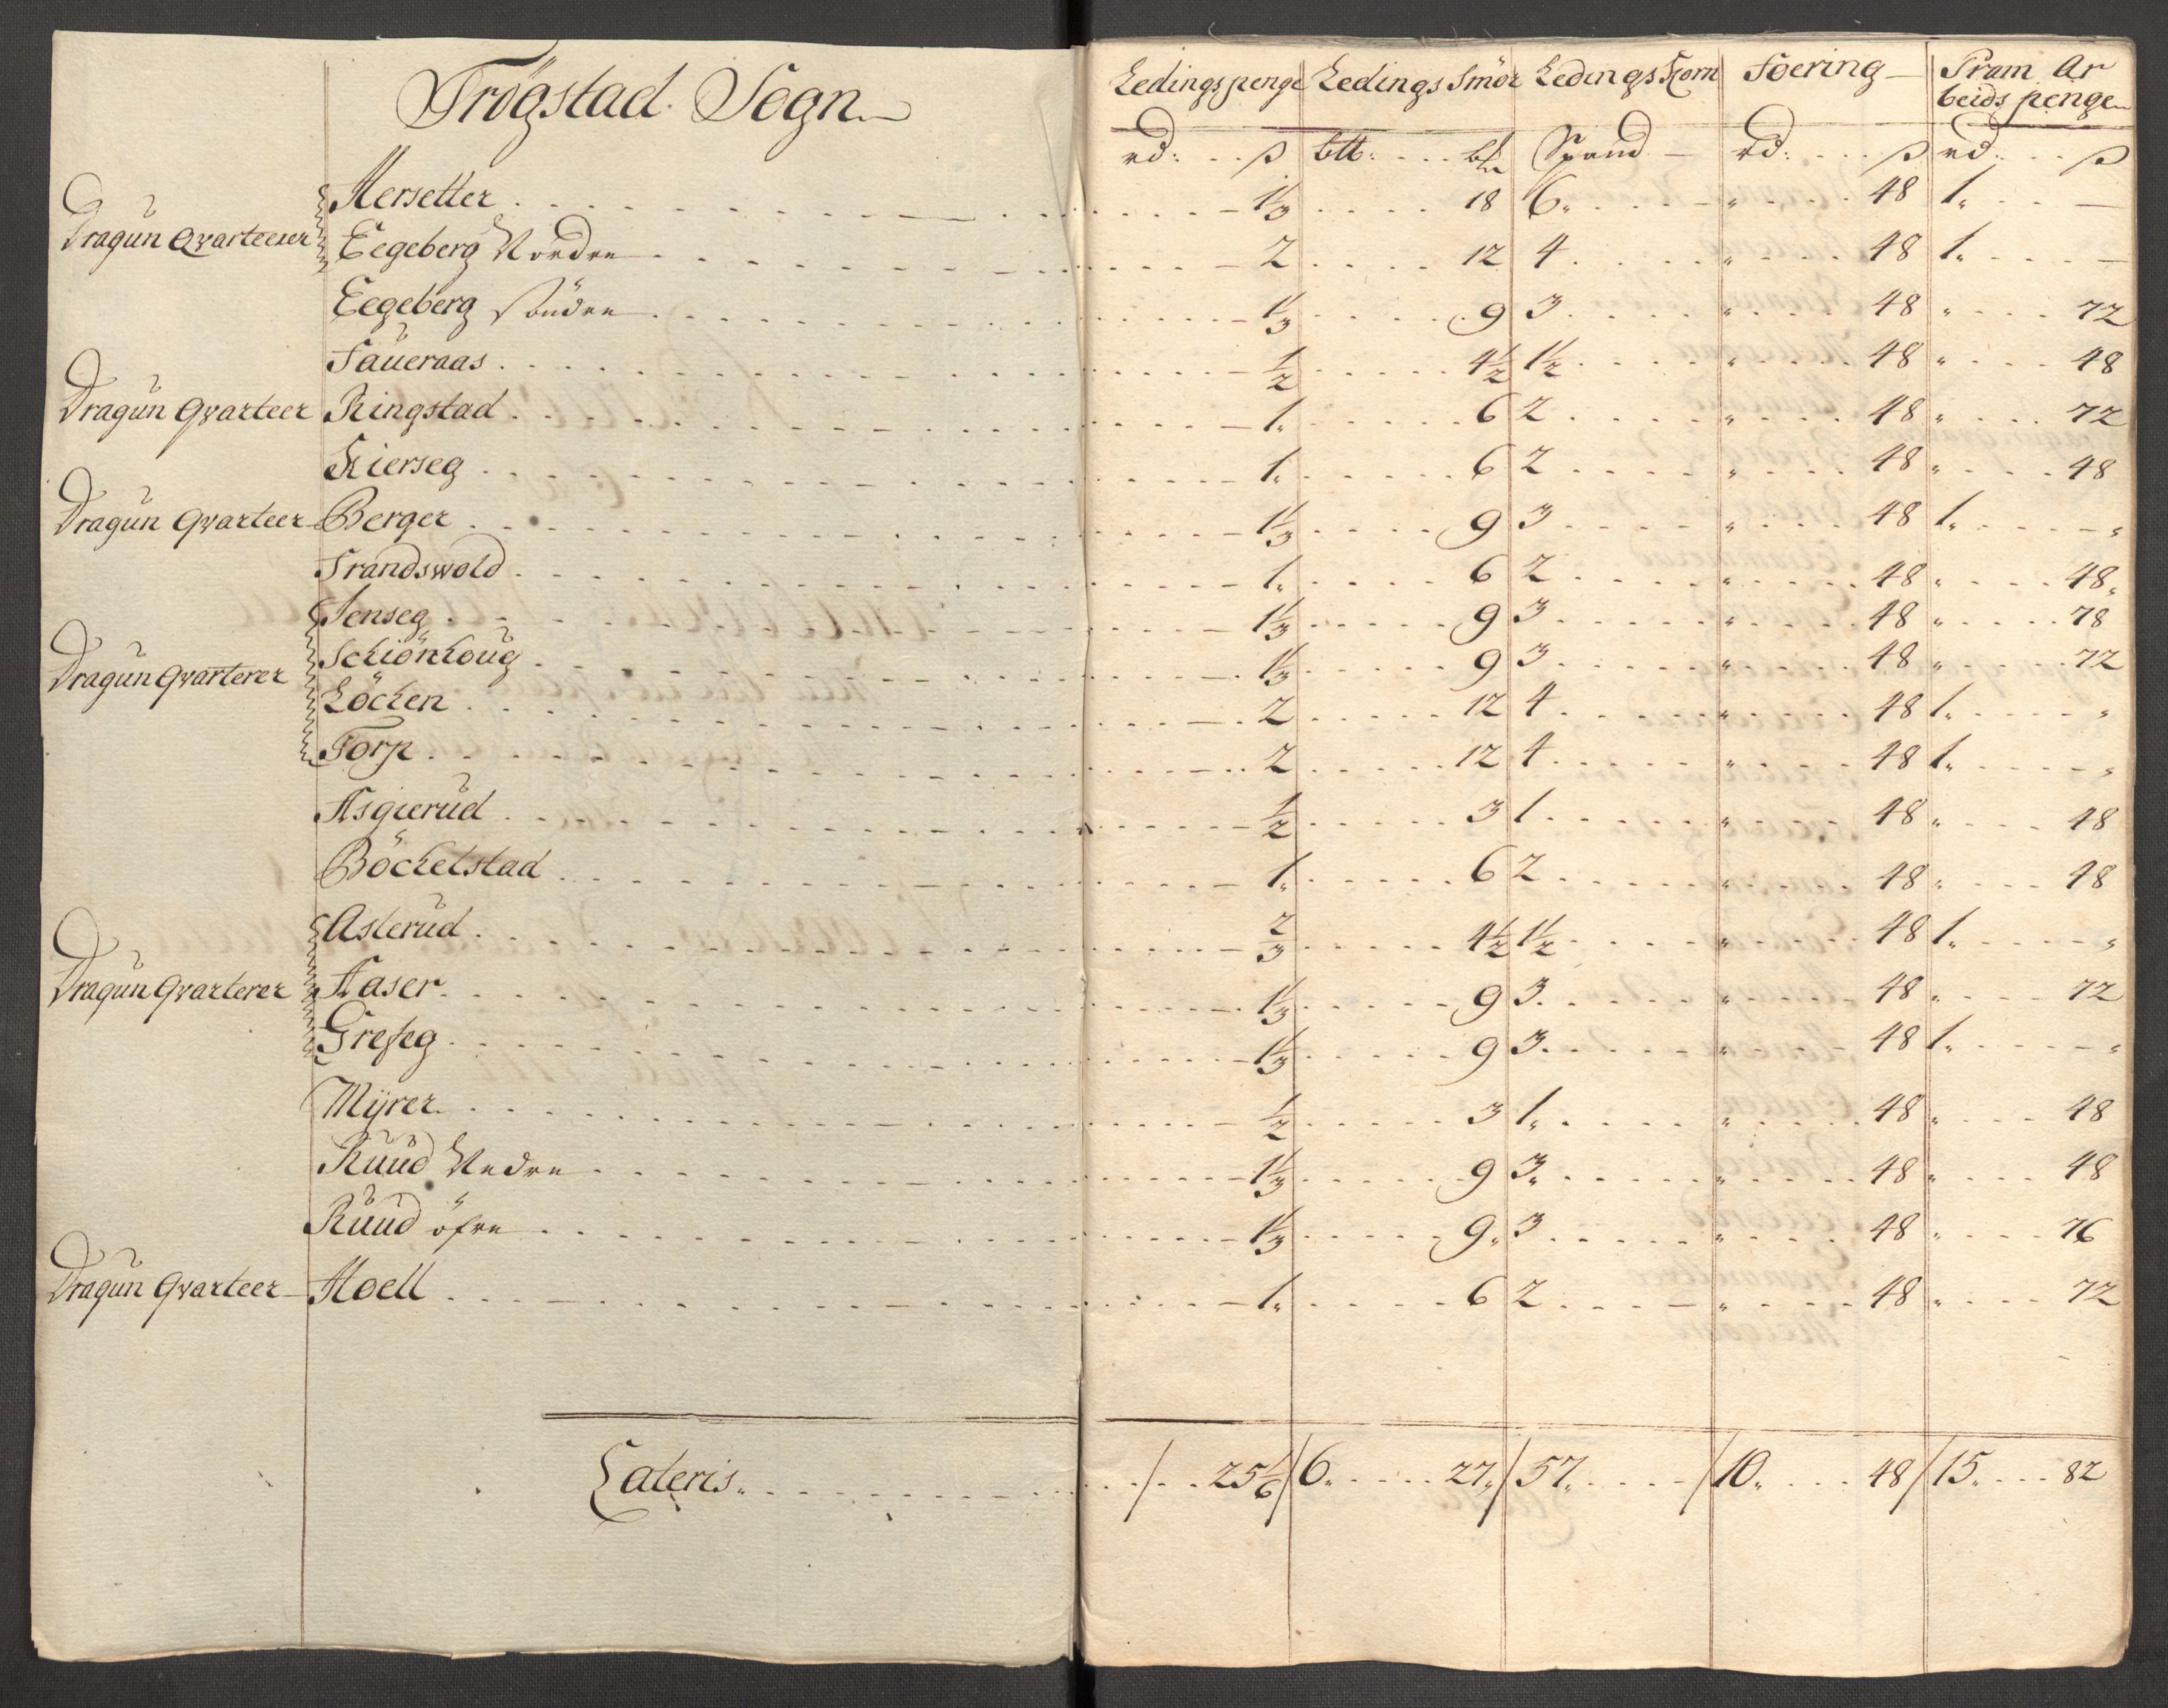 Trögstad Sogn
Ledingspenge Ledings Smör Ledings Korn Foering Pram Ar
beids penge
rd: ß btt: Spand rd: ß rd: ß
Mersetter 1⅓ 18 6 " 48 1 -
Dragun Qvarteerer Eegeberg Nordre 2 12 4 " 48 1 -
Eegeberg Söndre 1⅓ 9 3 " 48 " 72
Saueraas ½ 4½ 1½ " 48 " 48
Dragun Qvarteer Ringstad 1 6 2 " 48 " 72
Kierseg 1 6 2 " 48 " 48
Dragun Qvarteer Berger 1⅓ 9 3 " 48 1 "
Trandswold 1 6 2 " 48 " 48
Jenseg 1⅓ 9 3 " 48 " 78
Schiönhoug 1⅓ 9 3 " 48 " 72
Dragun Qvarterer Löcken 2 12 4 " 48 1 "
Torp 2 12 4 " 48 1 "
Asgierud ½ 3 1 " 48 " 48
Böckelstad 1 6 2 " 48 " 48
Aslerud ⅔ 4½ 1½ " 48 1 "
Dragun Qvarterer Haser 1⅓ 9 3 " 48 " 72
Grefseg 1⅓ 9 3 " 48 1 "
Myrer ½ 3 1 " 48 " 48
Ruud Nedre 1⅓ 9 3 " 48 " 48
Ruud öfre 1⅓ 9 3 " 48 " 76
Dragun Qvarteer Hoell 1 6 2 " 48 " 72
Lateris 25 1/6 6 27 57 10 48 15 82